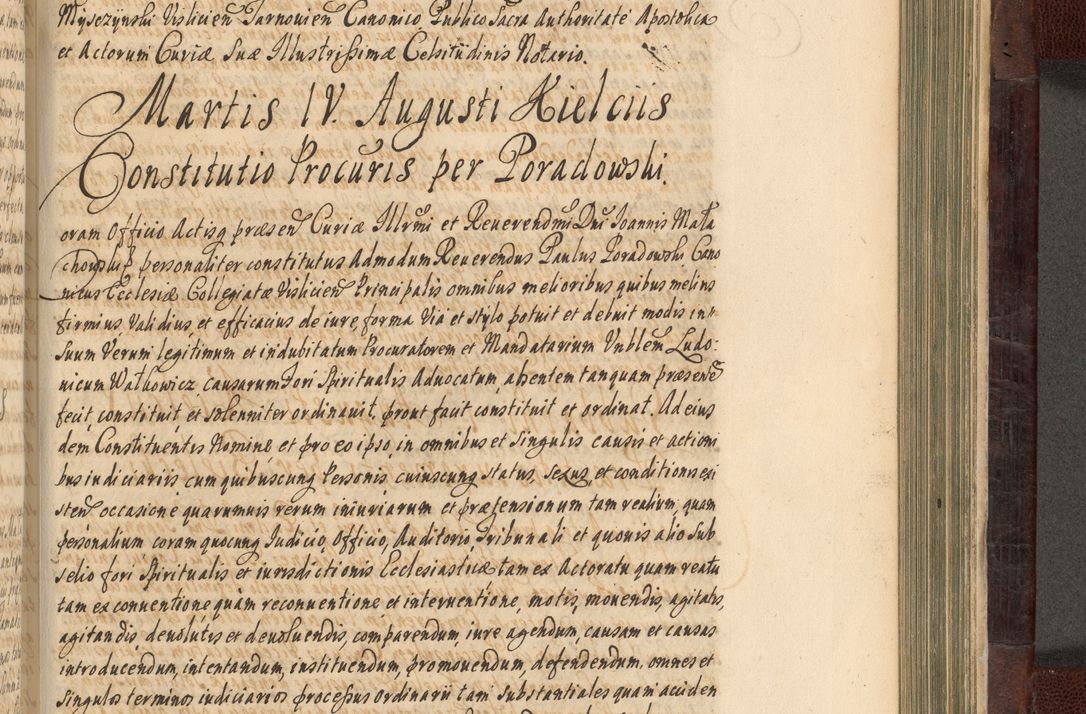 Mysczÿnski Vislicień Tarnovień Canonico Publico Sacra Authoritate Apostolica
et Actorum Curiæ Suæ Illustrißimæ Celsitudinis Notario.
Martis IV. Augusti Kielciis
Constitutio Procuris per Poradowski.
oram Officio Actisq præsen Curiæ Illrmi et Reuerendmi Dni Ioannis Mała
chowski personaliter constitutus Admodum Reuerendus Paulus Poradowski Cano
nicus Ecclesiæ Collegiatæ Vislicień Principalis omnibus melioribus quibus melius
firmius, Validius, et efficacius de iure, forma Via et stylo potuit et debuit modis in
Suum Verum legitimum et indubitatum Procuratorem et Mandatarium Vnblem Ludo:
uicum Wałkowicz, causarum Fori Spiritualis Aduocatum, absentem tanquam præsene
fecit, constituit, et solenniter ordinauit, prout facit constituit et ordinat. Ad eius
dem Constituentis Nomine, et pro eo ipso, in omnibus et singulis causis et actioni
bus iudiciariis cum quibuscunq Personis cuiuscunq status, sexus, et conditionis exi
sten occasione quarumuis rerum iniuriarum et prætensionum tam realium, quam
personalium coram quocunq Iudicio, Officio, Auditorio, Tribunali et quouis alio Sub
selio fori Spiritualis et iurisdictionis Ecclesiasticæ tam ex Actoratu quam reatu
tam ex conuentione quàm reconuentione et interuentione, motis, mouendis, agitatis,
agitandis, deuolutis et deuoluendis, comparendum, iure agendum, causam et causas
introducendum, intentandum, instituendum, promouendum, defendendum, omnes et
Singulos terminos iudiciarios processus ordinarii tam substantiales quam acciden